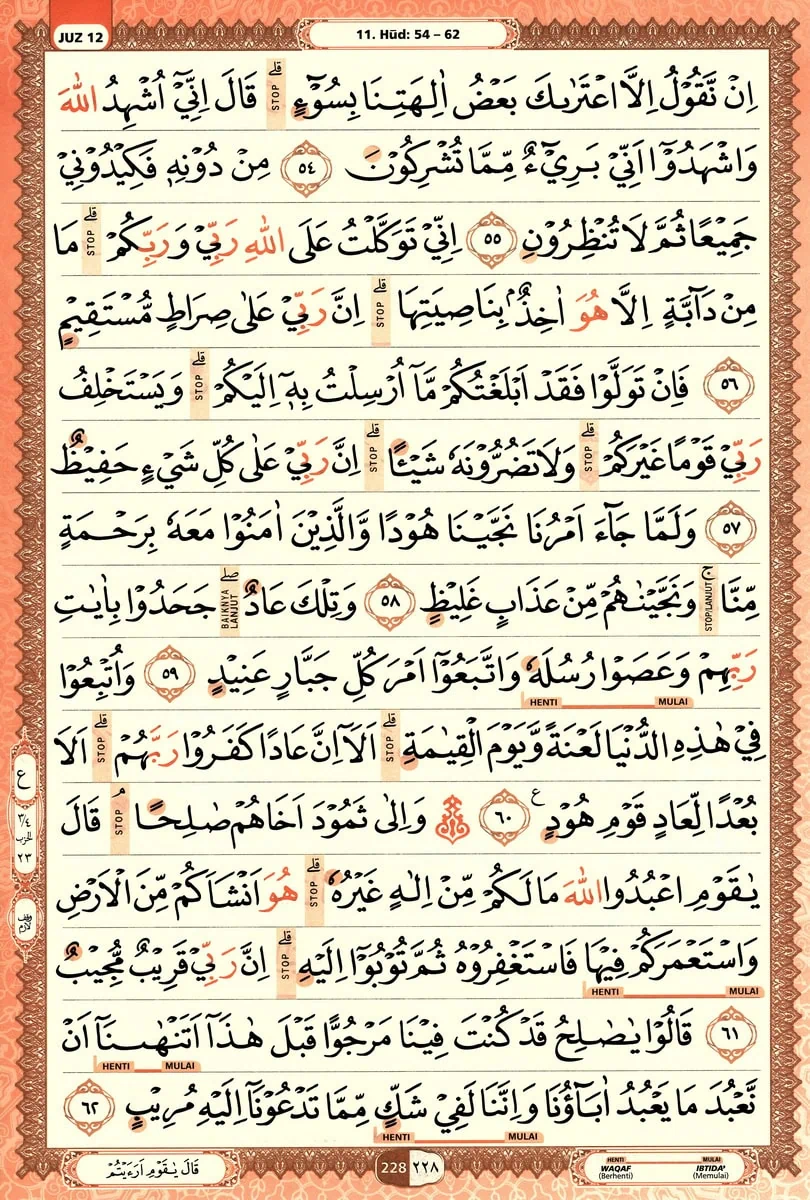 JUZ 12
11. Hūd: 54 – 62
اِنْ نَّقُوْلُ اِلَّا اعْتَرٰىكَ بَعْضُ اٰلِهَتِنَا بِسُوْۤءٍ ۗ قَالَ اِنِّيْٓ اُشْهِدُ اللّٰهَ
وَاشْهَدُوْٓا اَنِّيْ بَرِيْۤءٌ مِّمَّا تُشْرِكُوْنَ ٥٤ مِنْ دُوْنِهٖ فَكِيْدُوْنِيْ
جَمِيْعًا ثُمَّ لَا تُنْظِرُوْنِ ٥٥ اِنِّيْ تَوَكَّلْتُ عَلَى اللّٰهِ رَبِّيْ وَرَبِّكُمْ ۗ مَا
مِنْ دَاۤبَّةٍ اِلَّا هُوَ اٰخِذٌۢ بِنَاصِيَتِهَا ۗ اِنَّ رَبِّيْ عَلٰى صِرَاطٍ مُّسْتَقِيْمٍ
٥٦ فَاِنْ تَوَلَّوْا فَقَدْ اَبْلَغْتُكُمْ مَّآ اُرْسِلْتُ بِهٖٓ اِلَيْكُمْ ۗ وَيَسْتَخْلِفُ
رَبِّيْ قَوْمًا غَيْرَكُمْ ۗ وَلَا تَضُرُّوْنَهٗ شَيْـًٔا ۗ اِنَّ رَبِّيْ عَلٰى كُلِّ شَيْءٍ حَفِيْظٌ
٥٧ وَلَمَّا جَاۤءَ اَمْرُنَا نَجَّيْنَا هُوْدًا وَّالَّذِيْنَ اٰمَنُوْا مَعَهٗ بِرَحْمَةٍ
مِّنَّا ۚ وَنَجَّيْنٰهُمْ مِّنْ عَذَابٍ غَلِيْظٍ ٥٨ وَتِلْكَ عَادٌ ۖ جَحَدُوْا بِاٰيٰتِ
رَبِّهِمْ وَعَصَوْا رُسُلَهٗ وَاتَّبَعُوْٓا اَمْرَ كُلِّ جَبَّارٍ عَنِيْدٍ ٥٩ وَاُتْبِعُوْا
HENTI MULAI
فِيْ هٰذِهِ الدُّنْيَا لَعْنَةً وَّيَوْمَ الْقِيٰمَةِ ۗ اَلَآ اِنَّ عَادًا كَفَرُوْا رَبَّهُمْ ۗ اَلَا
بُعْدًا لِّعَادٍ قَوْمِ هُوْدٍ ࣖ ٦٠ ۞ وَاِلٰى ثَمُوْدَ اَخَاهُمْ صٰلِحًا ۘ قَالَ
يٰقَوْمِ اعْبُدُوا اللّٰهَ مَا لَكُمْ مِّنْ اِلٰهٍ غَيْرُهٗ ۗ هُوَ اَنْشَاَكُمْ مِّنَ الْاَرْضِ
وَاسْتَعْمَرَكُمْ فِيْهَا فَاسْتَغْفِرُوْهُ ثُمَّ تُوْبُوْٓا اِلَيْهِ ۗ اِنَّ رَبِّيْ قَرِيْبٌ مُّجِيْبٌ
HENTI MULAI
٦١ قَالُوْا يٰصٰلِحُ قَدْ كُنْتَ فِيْنَا مَرْجُوًّا قَبْلَ هٰذَآ اَتَنْهٰىنَآ اَنْ
HENTI MULAI
نَّعْبُدَ مَا يَعْبُدُ اٰبَاۤؤُنَا وَاِنَّنَا لَفِيْ شَكٍّ مِّمَّا تَدْعُوْنَآ اِلَيْهِ مُرِيْبٍ ٦٢
HENTI MULAI
قَالَ يٰقَوْمِ اَرَءَيْتُمْ
228 ٢٢٨
HENTI MULAI
WAQAF IBTIDA'
(Berhenti) (Memulai)